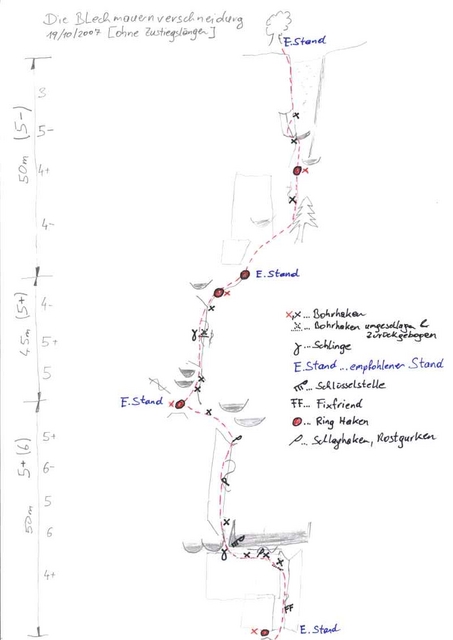 Die Blechmauernverschneidung
19/10/2007 [ohne Zustiegslängen]
E.Stand
3
5-
50m (5-)
4+
4-
E.Stand
4-
45m (5+)
5+
5
E.Stand
5+
5+(6)
6-
5
6
50m
4+
FF
E.Stand
x,x... Bohrhaken
x... Bohrhaken umgeschlagen &
zurückgebogen
... Schlinge
E.Stand ... empfohlener Stand
... Schlüsselstelle
FF ... Fixfriend
... Ring Haken
... Schlaghaken, Rostgurken